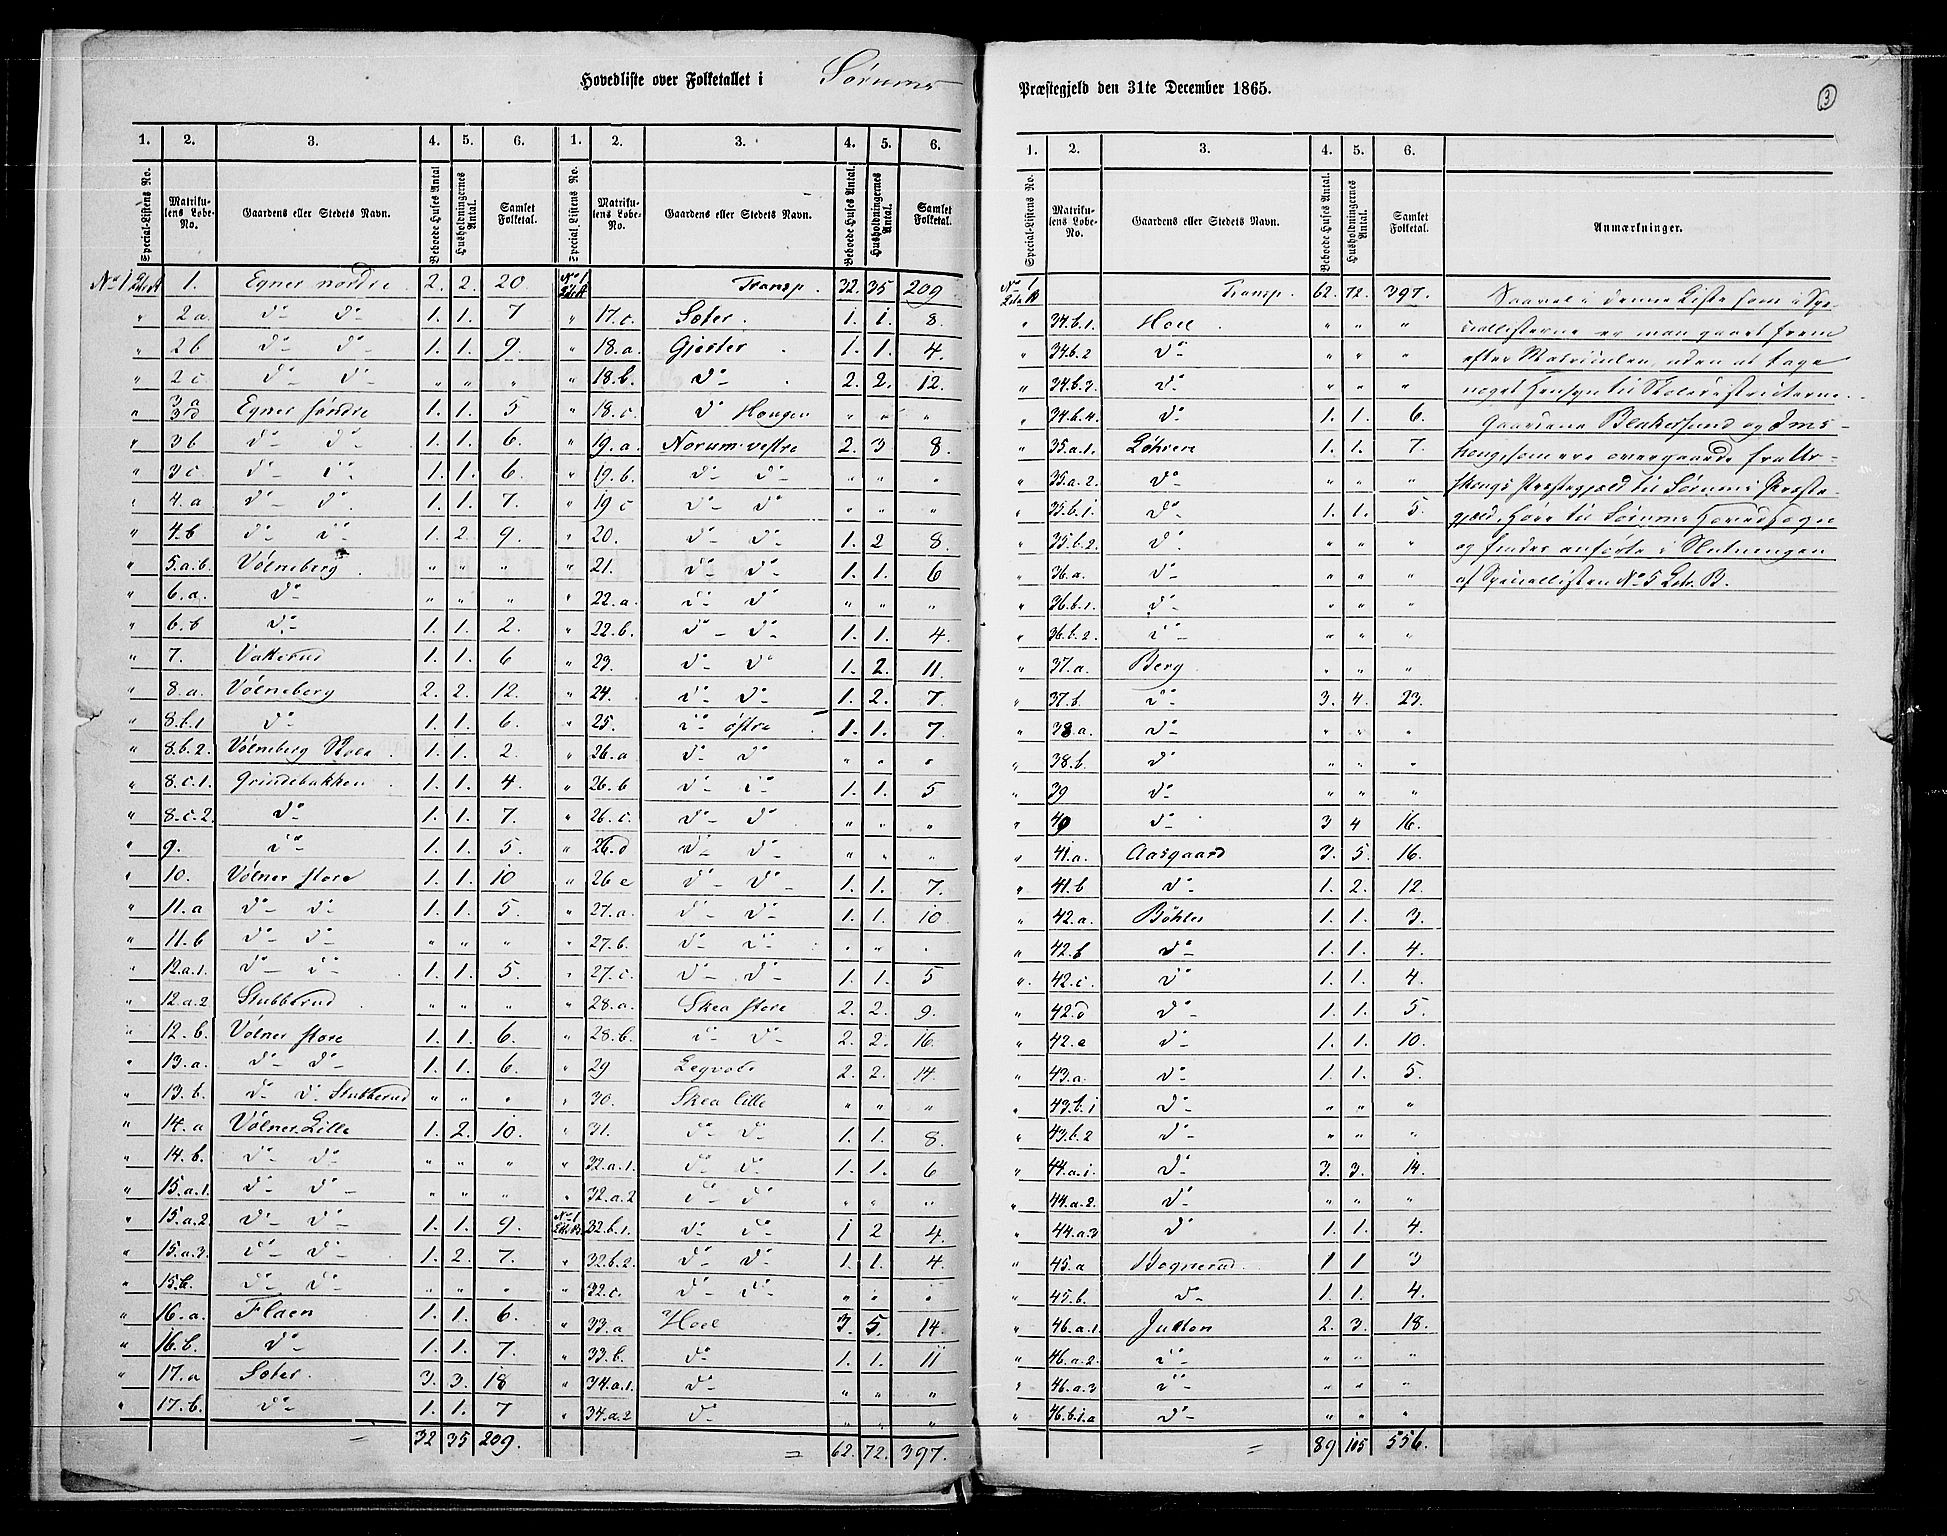 Hovedliste over Folketallet i Sørums
Præstegjeld den 31te December 1865.
3
1. 2. 3. 4. 5. 6.
Special-Listens No. Matrikulens Lobe-No. Gaardens eller Stedets Navn. Beboede Huses Antal Husholdningernes Antal. Samlet Folketal.
No 1 Litr A 1. Egner nordre 2. 2. 20
" 2a. do do 1. 1. 7
" 2b do do 1. 1. 9.
" 2c do do " " "
" 3a 3d Egner søndre 1. 1. 5
" 3b do do 1. 1. 6.
" 3c do do 1. 1. 6
" 4.a do do 1. 1. 7.
" 4.b do do 1. 2. 9.
" 5.a.b. Vølneberg " " "
" 6.a. do " " "
" 6.b do 1. 1. 2.
" 7. Vakkerud 1. 1. 6
" 8.a. Vølneberg 2. 2. 12.
" 8.b.1 do 1. 1. 6.
" 8.b.2. Vølneberg Skole 1. 1. 2.
" 8.c.1. Grindebakken 1. 1. 4.
" 8.c.2. do 1. 1. 7.
" 9. do 1. 1. 5.
" 10. Vølner store 1. 1. 10
" 11.a do do 1. 1. 5.
" 11.b do do " " "
" 12.a.1. do do 1. 1. 5.
" 12.a.2 Stubberud " " "
" 12.b. Vølner store 1. 1. 6.
" 13.a. do do 1. 1. 6.
" 13.b. do do Stubberud " " "
" 14.a Vølner Lille 1. 2. 10.
" 14.b. do do " " "
" 15.a.1. do do " " "
" 15.a.2. do do 1. 1. 9.
" 15.a.3. do do 1. 2. 7.
" 15.b. do do " " "
" 16.a. Flaen 1. 1. 6.
" 16.b. do 1. 1. 7.
" 17.a Sæter. 3. 3. 18
" 17.b. do 1. 1. 7
= 32 35 209.
1. 2. 3. 4. 5. 6.
Special Listens No. Matrikulens Lobe-No. Gaardens eller Stedets Navn. Beboede Huses Antal. Husholdningernes Antal. Samlet Folketal.
No 1 Litr A Transp. 32. 35 209
" 17.c. Sæter. 1. 1. 8.
" 18.a. Gjester 1. 1. 4.
" 18.b. do 2. 2. 12.
" 18.c. do Haugen " " "
" 19.a. Norum vestre 2. 3 8.
" 19.b. do do " " "
" 19.c do do " " "
" 20. do do 1. 2 8.
" 21. do do 1. 1. 6
" 22.a. do do " " "
" 22.b. do do 1. 1. 4
" 23. do do 1. 2. 11.
" 24. do do 1. 2. 7
" 25. do østre 1. 1. 7.
" 26.a do do " " "
" 26.b do do 1. 1. 5
" 26.c. do do " " "
" 26.d do do " " "
" 26 e do do 1. 1. 7.
" 27.a. do do 1. 1. 10
" 27.b. do do " " "
" 27.c. do do 1. 1. 5
" 28.a. Skea store 2. 2. 9.
" 28.b. do do 2. 2. 16
" 29 Legvold 2. 2. 14
" 30. Skea lille " " "
" 31. do do 1. 1. 8.
" 32.a.1. do do 1. 1. 6
" 32.a.2 do do " " "
No 1 Litr B. 32.b.1. do do 1 2 4
" 32.b.2. do do 1. 1. 4.
" 32.c. do do " " "
" 33.a Hoel 3. 5. 14.
" 33.b. do 1. 1. 11
" 34.a.1. do " " "
" 34.a.2 do " " "
= 62. 72. 397.
1. 2. 3. 4. 5. 6.
Special-Listens No. Matrikulens Lobe-No. Gaardens eller Stedets Navn. Beboede Huses Antal. Husholdningernes Antal. Samlet Folketal. Anmærkninger.
No 1 Litr B Transp. 62. 72. 397.
" 34.b.1. Hoel " " "
" 34.b.2 do " " "
" 34.b.3. do " " "
" 34.b.4. do 1. 1. 6.
" 35.a.1. Løhren 1. 1. 7.
" 35.a.2. do " " "
" 35.b.1. do 1. 1. 5.
" 35.b.2. do " " "
" 36.a. do " " "
" 36.b.1. do " " "
" 36.b.2. do " " "
" 37.a. Berg " " "
" 37.b. do 3. 4. 23.
" 38.a. do " " "
" 38.b. do " " "
" 39 do " " "
" 40 do 3 4 16.
" 41.a. Aasgaard 3. 5. 16.
" 41.b do 1. 2. 12.
" 42.a. Bøhler 1. 1. 3.
" 42.b do 1. 1. 4.
" 42.c. do 1. 1. 4
" 42.d do 1. 1. 5.
" 42.e do 1. 1. 10.
" 43.a. do 1. 1. 5.
" 43.b.1 do " " "
" 43.b.2 do " " "
" 44.a.1. do 3. 3. 14.
" 44.a.2. do " " "
" 44.a.3 do 1. 1. 4.
" 45.a Bognerud 1 1 3
" 45.b. do 1. 1. 4.
" 46.a.1. Julton 2. 3. 18.
" 46.a.2. do " " "
" 46.a.3 do " " "
" 46.b.1.a do " " "
= 89 105 556.
Saavel i denne Liste som i Spe-
ciallisterne er man gaaet frem
efter Matriculen, uden at tage
noget Hensyn til Skoledistricterne.
Gaardene Blakersund og Ims-
houg som ere overgaaede fra Ur-
skougs Præstegjeld til Sørums Præste-
gjeld, høre til Sørums Hovedsogn
og findes anførte i Slutningen
af Speciallisten No 5 Litr. B.